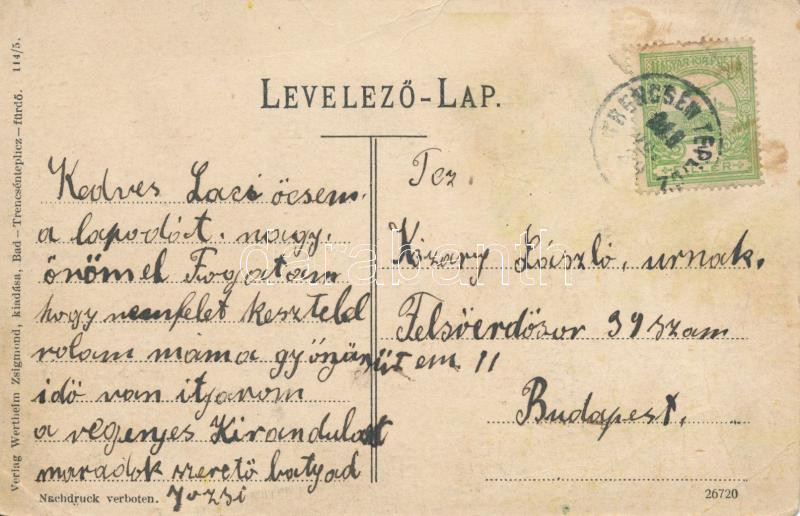 Verlag Wertheim Zsigmond, kiadása, Bad-Trencsénteplicz-fürdő. 114/5.
LEVELEZŐ-LAP.
MAGYAR KIR. POSTA
TRENCSÉN TEP
Kedves Laci öcsem
a lapodót. nagy.
önömel Fogatam
hogy nemfelet keszteld
rolam máma a gyönyörüt
idő van itjarom
a regenyes Kirandulast
maradok szerető batyad
Jozsi
Tcz
Kizary László, urnak.
Felsőerdősor 39 szam
em. 11
Budapest.
Nachdruck verboten.
26720
darabanth